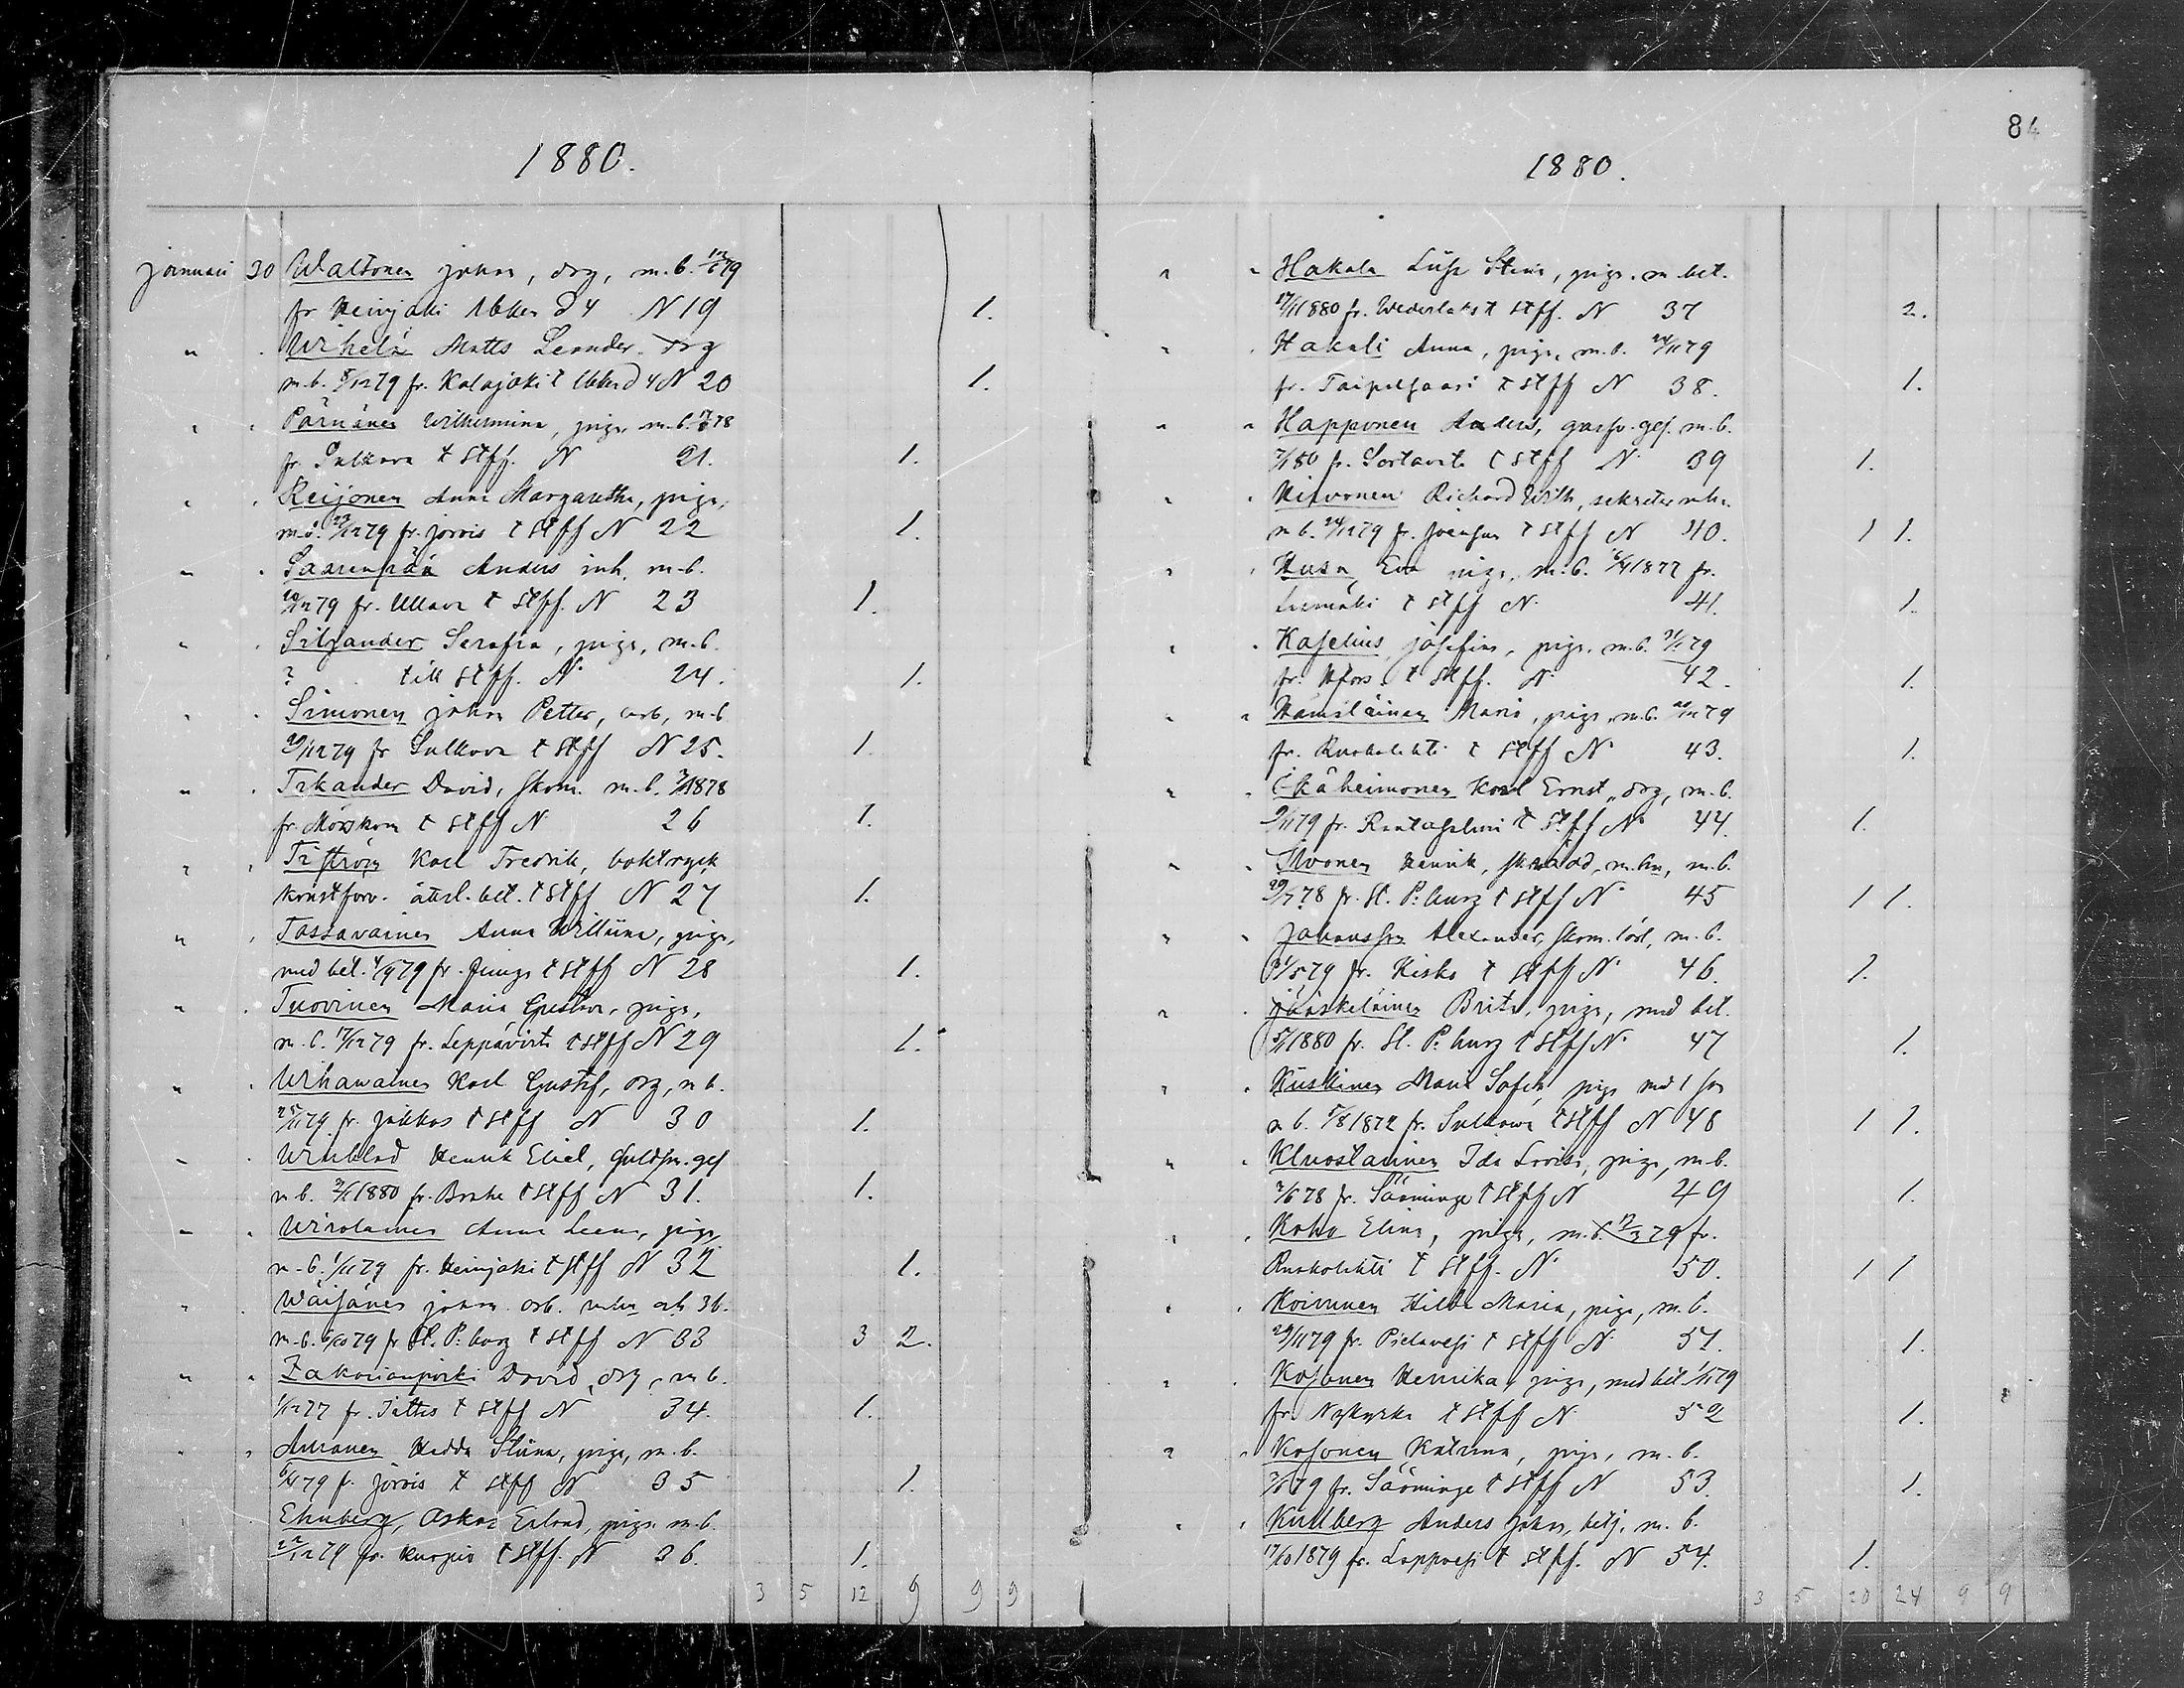 1880.
januari 30 Waltonen Johan, drg, m.b. 12/6 79
fr Heinjoki Abkersd 4 N 19 1.
" " Wihelä Matts Leander. drg
m.b. 8/12 79 fr. Kalajoki t 4 N 20 1.
" " Pärnänen Wilhelmina, piga m.b. 78
fr Sulkava t Stff. N 21. 1.
" " Reijonen Anna Margaretha, piga,
m.b. 23/12 79 fr. Jorois t Stff N 22 1.
" " Saarenpää Anders inh. m.b.
20/12 79 fr. Ullava t Stff. N 23 1.
" " Siljander Serafia, piga, m.b.
? till Stff. N 24. 1.
" " Simonen Johan Petter, arb, m.b
29/12 79 fr Sulkava t Stff N 25. 1.
" " Tikander David, skom. m.b. 1878
fr. Mörskom t Stff N 26 1.
" " Karl Fredrik, boktryck
konstforv. återl. bet. t Stff N 27 1.
" " Tassavainen Anna Willina, piga,
med bet. 4/9 79 fr. t Stff N 28 1.
" " Tuovinen Maria Gustava, piga,
m.b. 17/12 79 fr. Leppävirta t Stff N 29 1.
" " Wihavainen Karl Gustaf, drg, m b.
25/11 79 fr. Jokkas t Stff N 30 1.
" " Winblad Henrik Eliel, Guldsm. ges
m b. 2/1 1880 fr. Brahe t Stff N 31. 1.
" " Wirolainen Anna Leena, piga,
m.b. 1/11 79 fr. Heinjoki t Stff N 32 1.
" " Wäisänen Johan arb. mhu och 3 b.
m.b. 6/10 79 fr St. P:burg t Stff N 33 3 2.
" " Zakorianpoiki David, drg, m b.
1/12 77 fr. Jättis t Stff N 34. 1.
" " Auranen Hedda Stiina, piga, m.b.
79 f. Jorois t Stff N 35 1.
" " Ehnberg, Oskar Erland, piga. m.b.
22/12 79 fr. Kuopio t Stff. N 36. 1.
3 5 12 9 9 9
84
1880.
" " Hakala Liisa Stina, piga. m bet.
17/1 1880 fr. Wederlaks t Stff. N 37 2.
" " Hakuli Anna, piga, m.b. 24/11 79
fr. Taipalsaari t Stff N 38. 1.
" " Happonen Anders, garfv. ges. m.b.
7/1 80 fr. Sortavala t Stff N 39 1.
" " Hirvonen Richard Wilh, sekreter mhu.
m b. 24/12 79 fr. Joensuu t Stff N 40. 1 1.
" " Husu, Eva piga, m.b. 6/4 1877 fr.
Luumäki t Stff N 41. 1.
" " Kaselius Josefina, piga. m.b. 31/1 79
fr. Hfors. t Stff. N 42. 1.
" " Hämäläinen Maria, piga, m.b. 20/12 79
fr. Ruokolahti t Stff N 43. 1.
" " Ikäheimonen Karl Ernst, drg, m.b.
9/11 79 fr. Rantasalmi t Stff N 44. 1.
" " Ilvonen Henrik, skrädd, m.hu, m.b.
29/7 78 fr. St. P:burg t Stff N 45 1 1.
" " Johansson Alexander, skom. lärl, m.b.
31/5 79 fr. Kisko t Stff N 46. 1.
" " Jääskeläinen Brita, piga, med bet.
5/1 1880 fr. St. P:burg t Stff N 47 1.
" " Kiiskinen Maria Sofia, piga med 1 son
m b. 5/8 1872 fr. Sulkava t Stff N 48 1 1.
" " Kluostarinen Ida Lovisa, piga, m.b.
7/6 78 fr. Sääminge t Stff N 49 1.
" " Koho Elina, piga, m.b. 12/3 79 fr.
Ruokolahti t Stff. N 50. 1 1
" " Koivunen Hilda Maria, piga, m.b.
29/11 79 fr. Pielavesi t Stff N 51. 1.
" " Kosonen Henrika, piga, med bet 1/11 79
fr. Nykyrka t Stff N 52 1.
" " Kosonen Katarina, piga, m.b.
7/6 79 fr. Sääminge t Stff N 53. 1.
" " Kullberg Anders Johan, betj. m.b.
17/10 1879 fr. Loppvesi t Stff. N 54. 1.
3 5 20 24 9 9